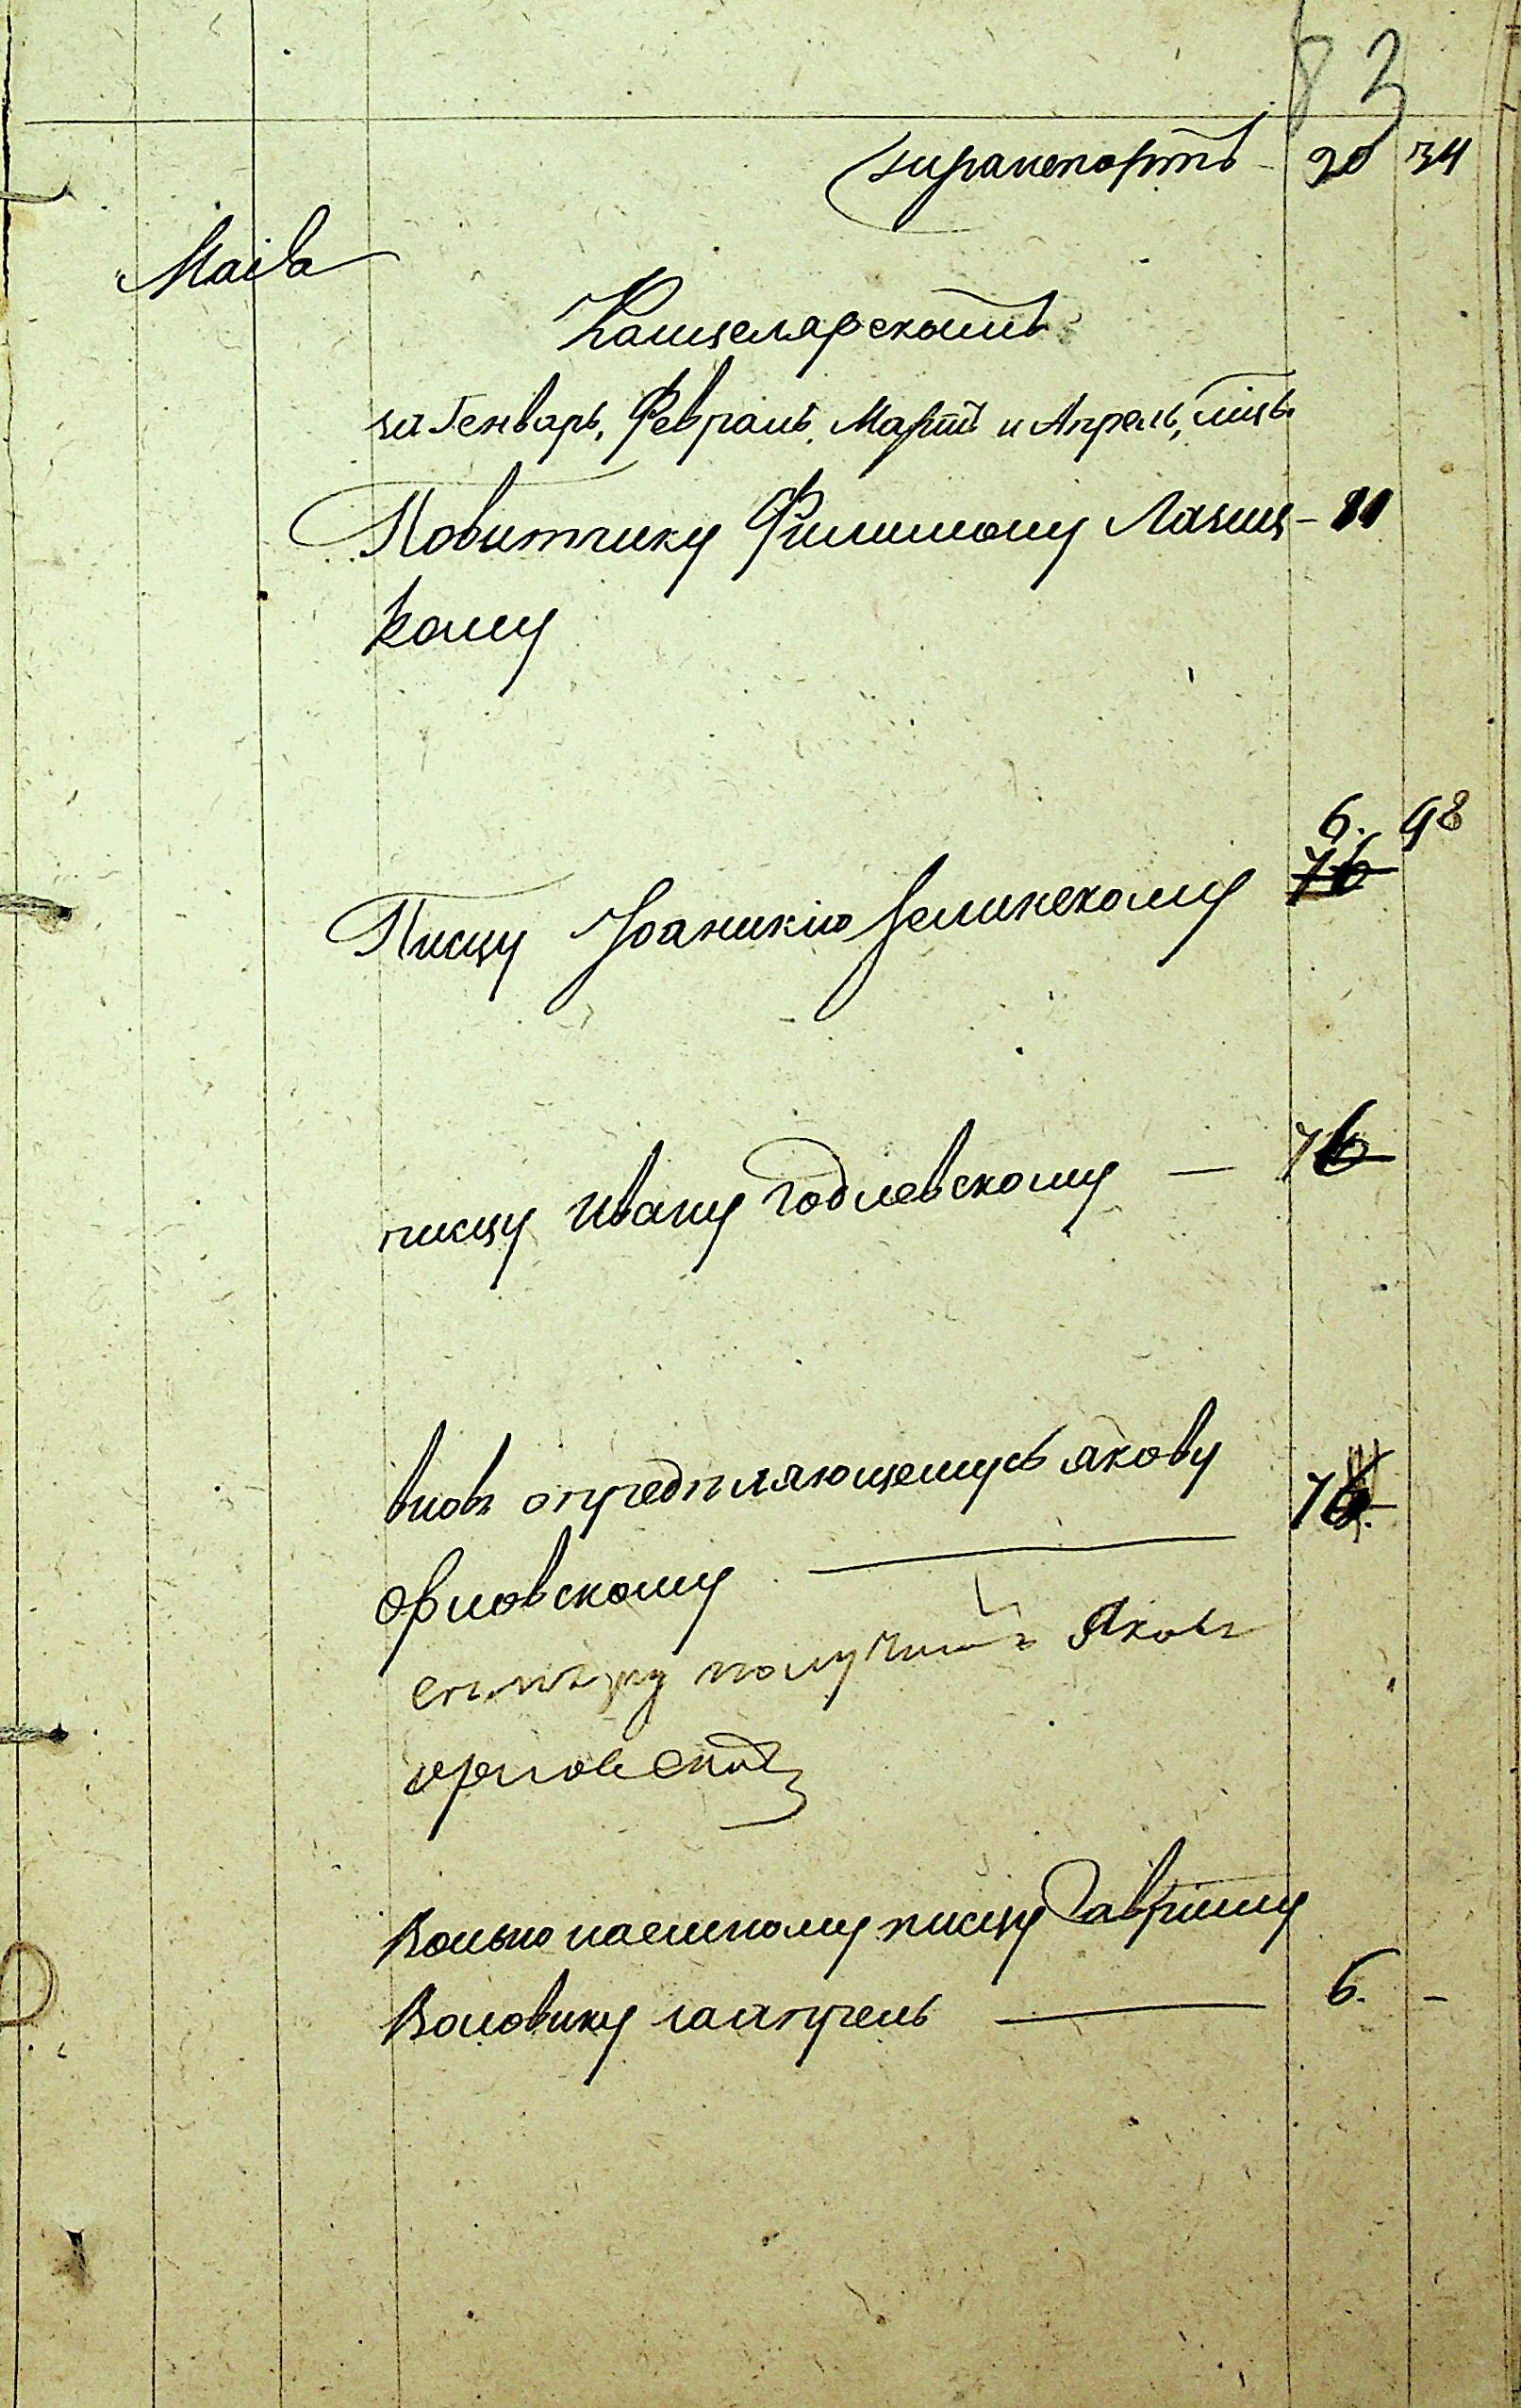 83
транспортъ - 20 34
Маія
Канцелярскимъ
за Генварь, Февраль, Мартъ и Апрель, мцы
Повитчику Филимону Лазиц- 11
кому
6. 98
Писцу Іоаникію Зелинскому 76
писцу Ивану Годлевскому — 76
вновь определяющемусь Якову
Орловскому — 76
получилъ Яковъ
Орловскій
Вольно наемному писцу Гаврилу
Воловику за апрель — 6. -